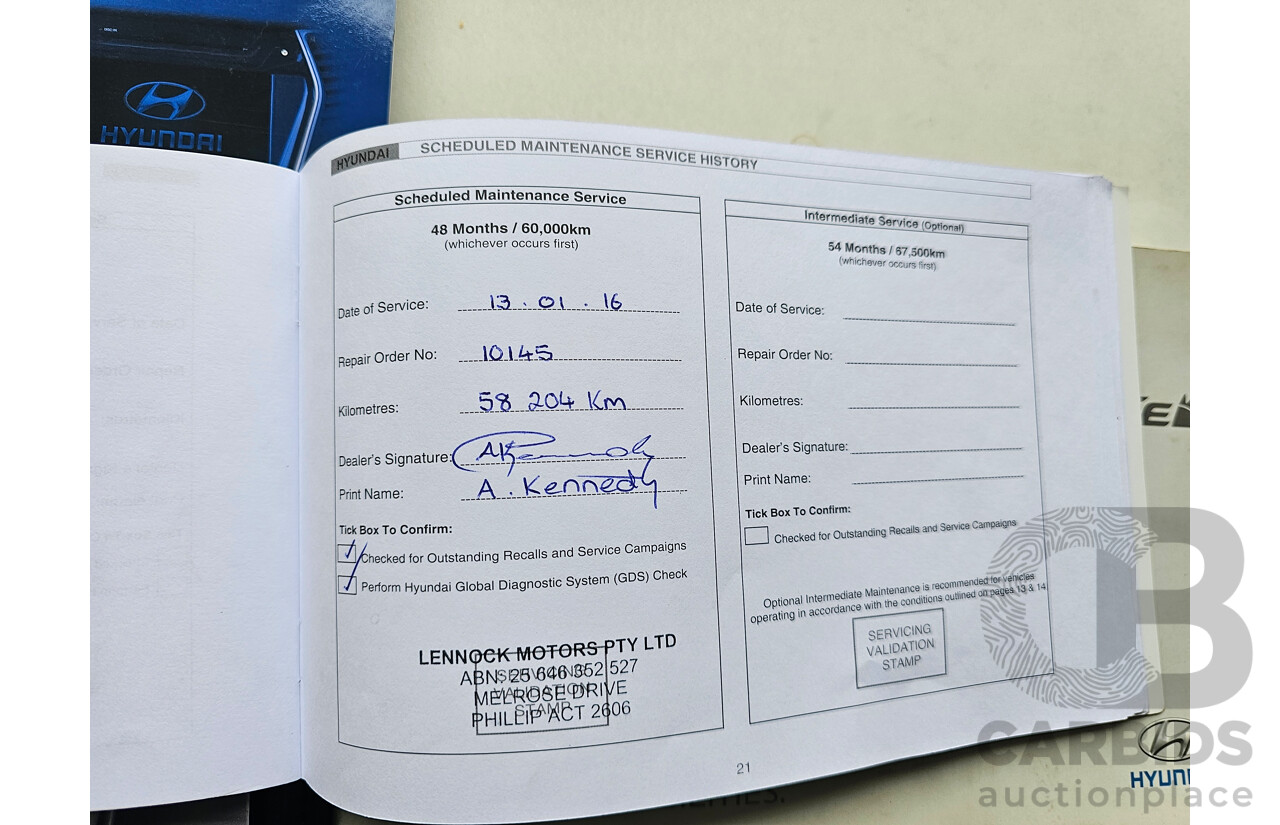 HYUNDAI
HYUNDAI SCHEDULED MAINTENANCE SERVICE HISTORY
Scheduled Maintenance Service
48 Months / 60,000km
(whichever occurs first)
Date of Service: 13.01.16
Repair Order No: 10145
Kilometres: 58 204 Km
Dealer's Signature: AKennedy
Print Name: A. Kennedy
Tick Box To Confirm:
Checked for Outstanding Recalls and Service Campaigns
Perform Hyundai Global Diagnostic System (GDS) Check
LENNOCK MOTORS PTY LTD
ABN: 25 646 352 527
MELROSE DRIVE
PHILLIP ACT 2606
SERVICING
VALIDATION
STAMP
Intermediate Service (Optional)
54 Months / 67,500km
(whichever occurs first)
Date of Service:
Repair Order No:
Kilometres:
Dealer's Signature:
Print Name:
Tick Box To Confirm:
Checked for Outstanding Recalls and Service Campaigns
Optional Intermediate Maintenance is recommended for vehicles
operating in accordance with the conditions outlined on pages 13 & 14
SERVICING
VALIDATION
STAMP
21
HYUN
CARBIDS
auctionplace